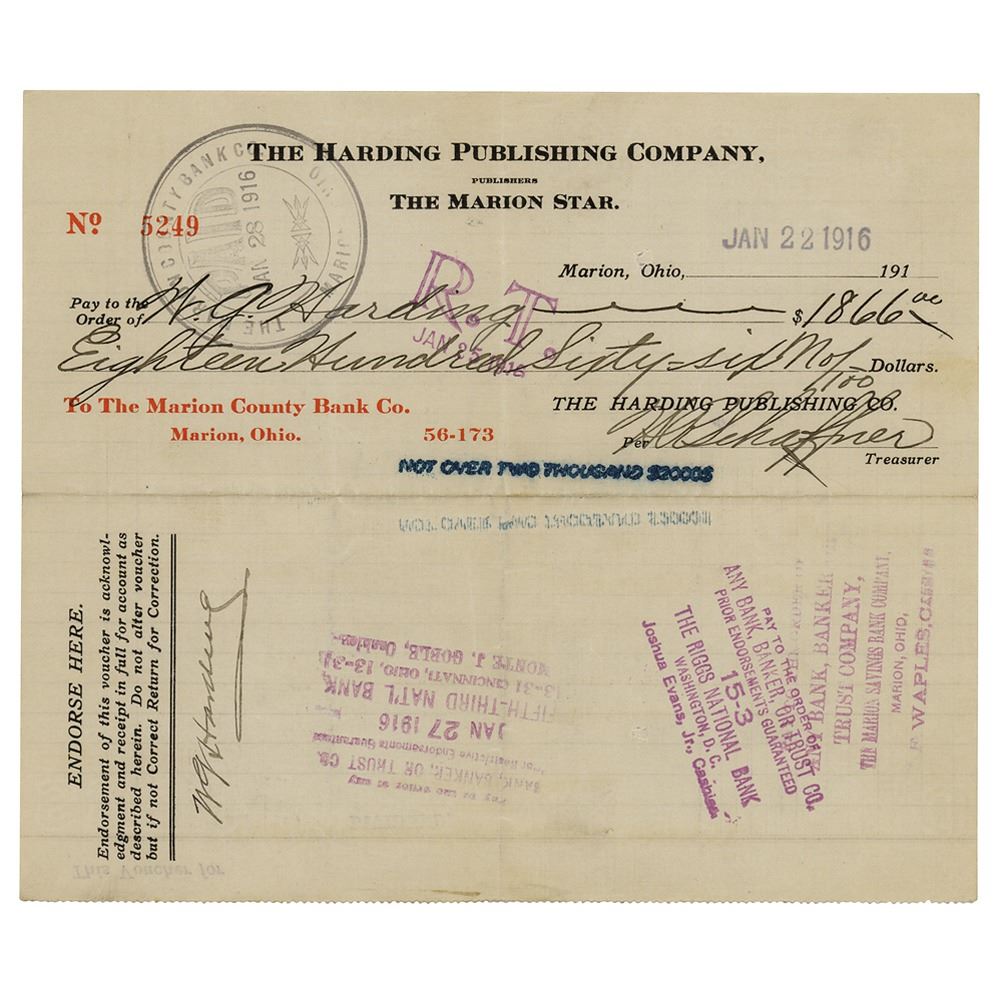 THE HARDING PUBLISHING COMPANY,
PUBLISHERS
THE MARION STAR.
Nº 5249
COUNTY BANK CO
PAID
JAN 28 1916
MARION
THE
JAN 22 1916
Marion, Ohio, 191
R.T.
JAN 25 1916
Pay to the
Order of W. G. Harding $1866 00
Eighteen Hundred Sixty-six No/100 Dollars.
To The Marion County Bank Co.
Marion, Ohio.
56-173
THE HARDING PUBLISHING CO.
Per Schaffner
Treasurer
NOT OVER TWO THOUSAND $2000$
ENDORSE HERE.
Endorsement of this voucher is acknowl-
edgment and receipt in full for account as
described herein. Do not alter voucher
but if not Correct Return for Correction.
W G Harding
BANK, BANKER, OR TRUST CO.
Prior Restrictive Endorsements Guaranteed
JAN 27 1916
FIFTH-THIRD NAT'L BANK
13-31 CINCINNATI, OHIO, 13-31
MONTE J. GOBLE, Cashier
PAY TO THE ORDER OF
ANY BANK, BANKER, OR TRUST CO.
PRIOR ENDORSEMENTS GUARANTEED
15-3
THE RIGGS NATIONAL BANK
WASHINGTON, D. C.
Joshua Evans, Jr., Cashier
BANK, BANKER
TRUST COMPANY,
THE MARION SAVINGS BANK COMPANY,
MARION, OHIO,
F WAPLES, CASHIER
This Voucher for